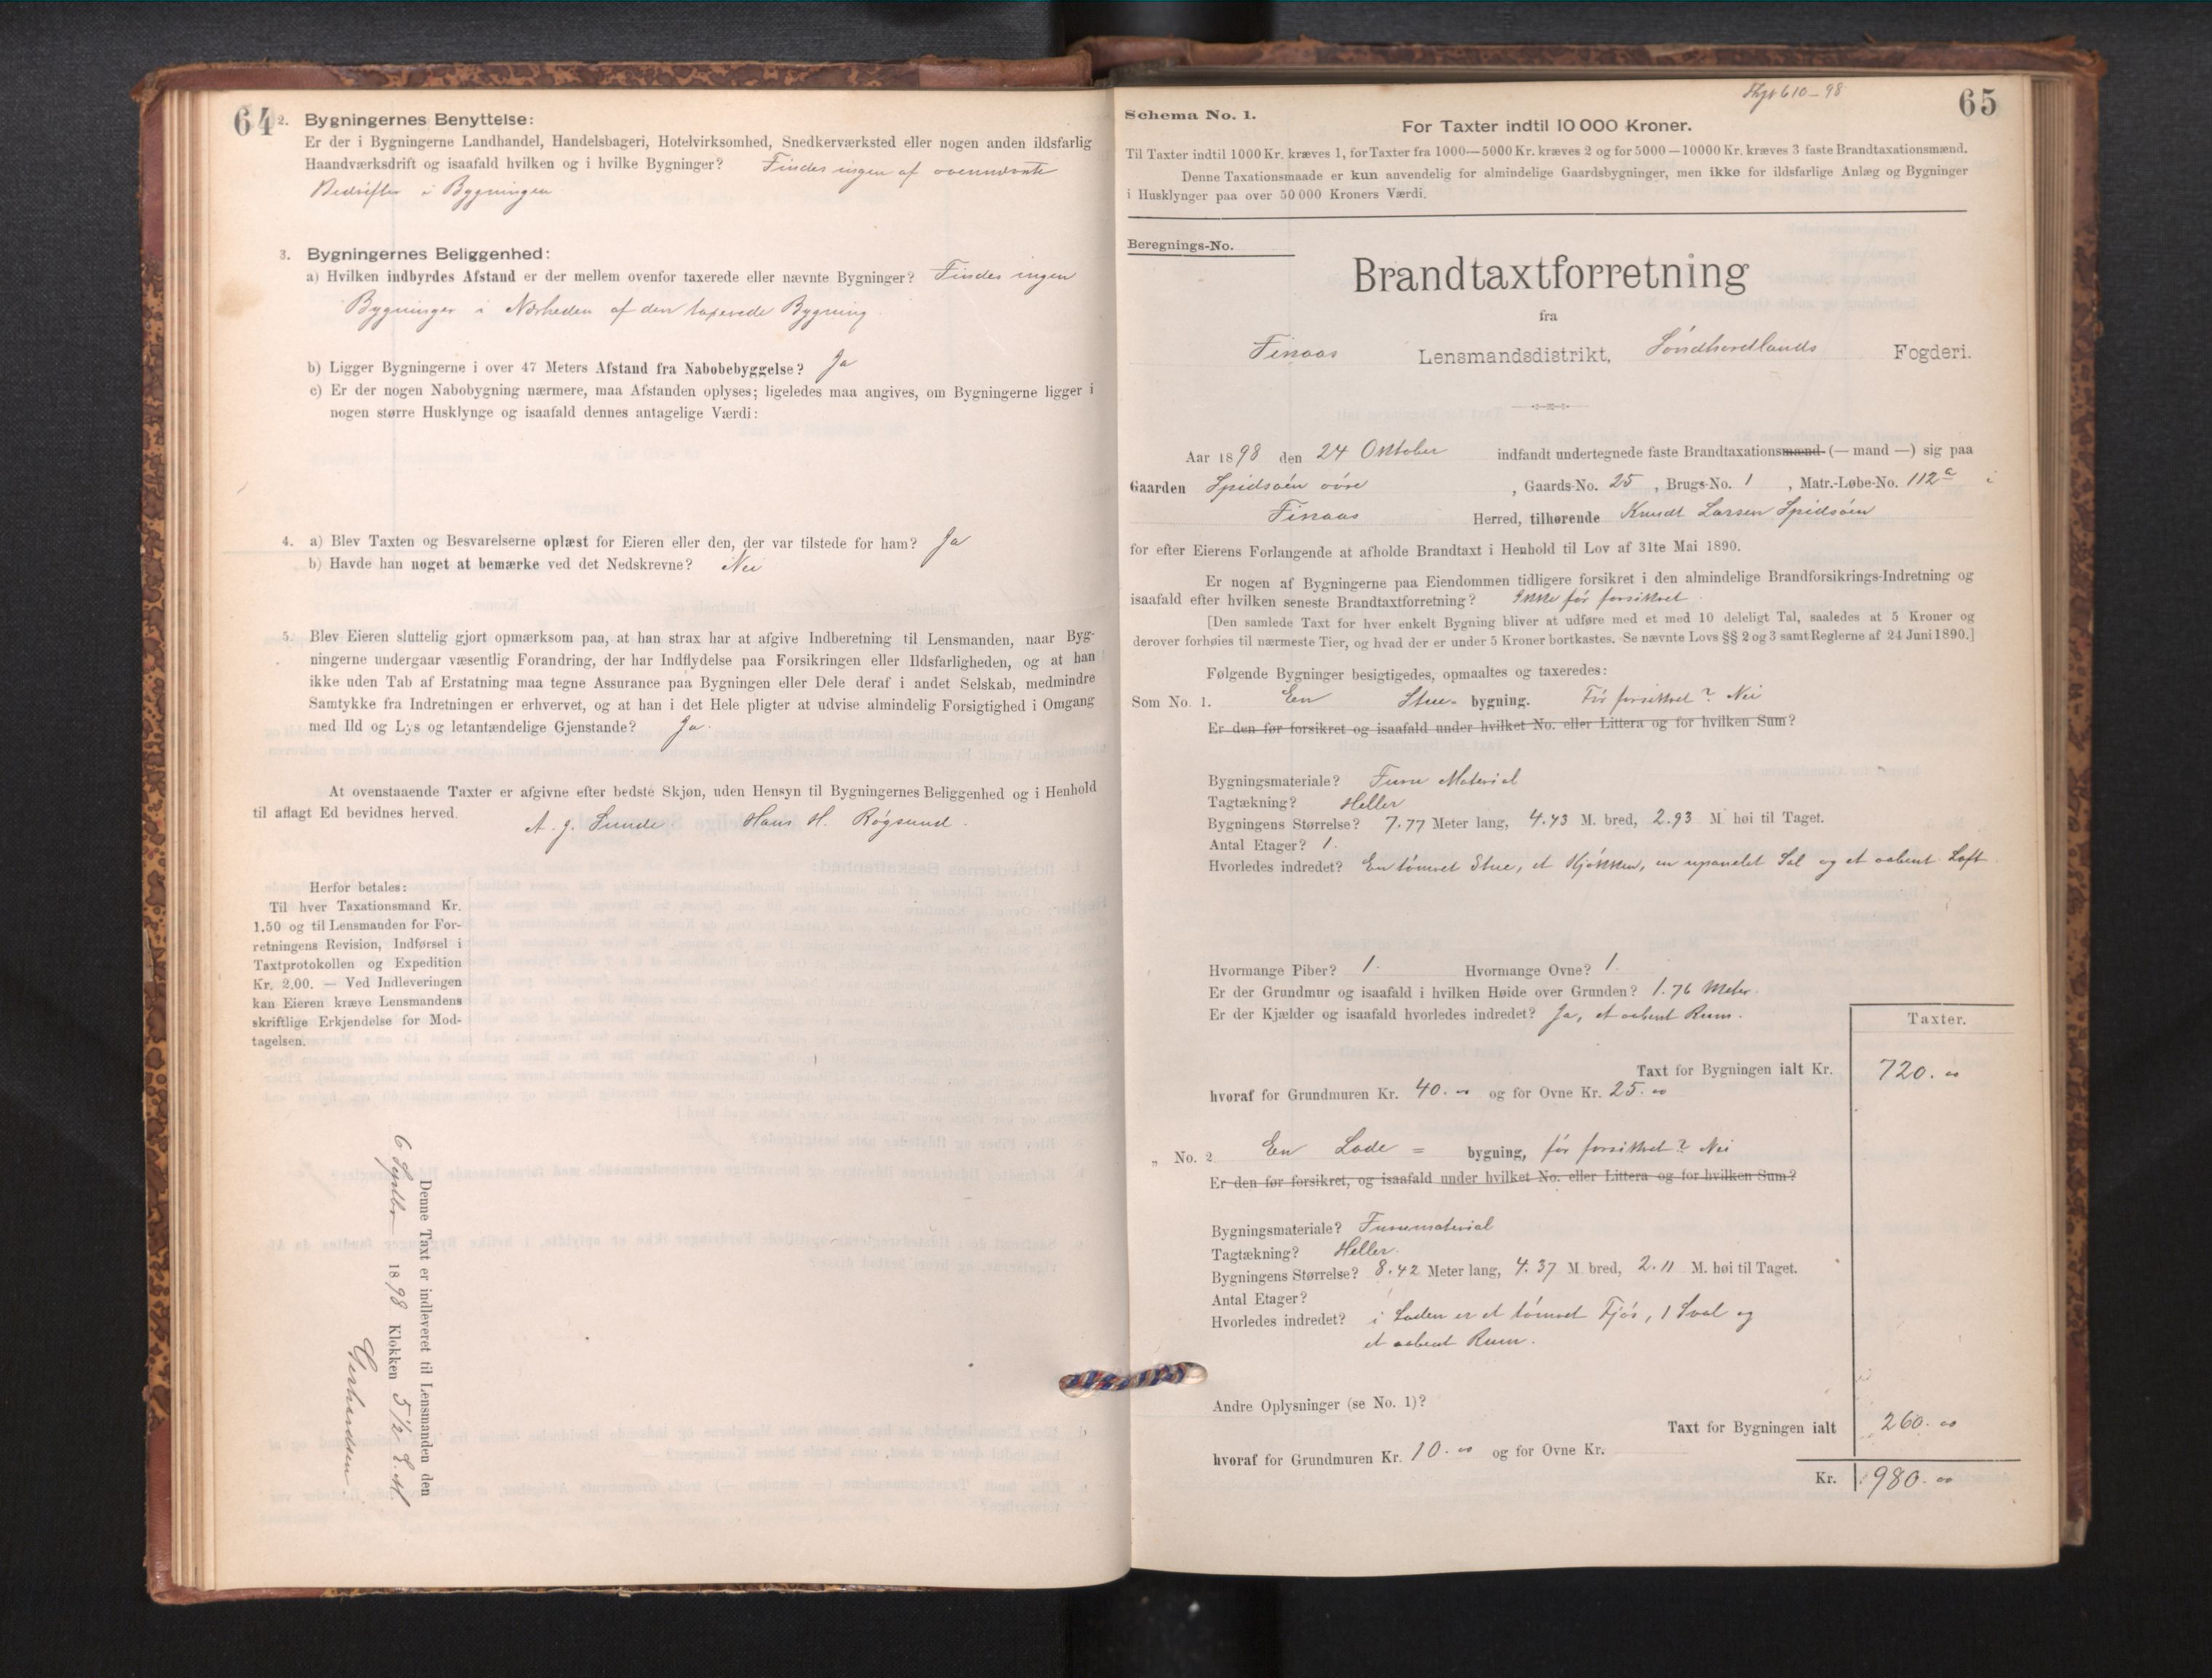 64
2. Bygningernes Benyttelse:
Er der i Bygningerne Landhandel, Handelsbageri, Hotelvirksomhed, Snedkerværksted eller nogen anden ildsfarlig
Haandværksdrift og isaafald hvilken og i hvilke Bygninger? Findes ingen af ovennævnte
Bedrifter i Bygningen
3. Bygningernes Beliggenhed:
a) Hvilken indbyrdes Afstand er der mellem ovenfor taxerede eller nævnte Bygninger? Findes ingen
Bygninger i Nærheden af den taxerede Bygning
b) Ligger Bygningerne i over 47 Meters Afstand fra Nabobebyggelse? Ja
c) Er der nogen Nabobygning nærmere, maa Afstanden oplyses; ligeledes maa angives, om Bygningerne ligger i
nogen større Husklynge og isaafald dennes antagelige Værdi:
4. a) Blev Taxten og Besvarelserne oplæst for Eieren eller den, der var tilstede for ham? Ja
b) Havde han noget at bemærke ved det Nedskrevne? Nei
5. Blev Eieren sluttelig gjort opmærksom paa, at han strax har at afgive Indberetning til Lensmanden, naar Byg-
ningerne undergaar væsentlig Forandring, der har Indflydelse paa Forsikringen eller Ildsfarligheden, og at han
ikke uden Tab af Erstatning maa tegne Assurance paa Bygningen eller Dele deraf i andet Selskab, medmindre
Samtykke fra Indretningen er erhvervet, og at han i det Hele pligter at udvise almindelig Forsigtighed i Omgang
med Ild og Lys og letantændelige Gjenstande? Ja.
At ovenstaaende Taxter er afgivne efter bedste Skjøn, uden Hensyn til Bygningernes Beliggenhed og i Henhold
til aflagt Ed bevidnes herved.
A. J. Sunde. Hans H. Røgsund.
Herfor betales:
Til hver Taxationsmand Kr.
1.50 og til Lensmanden for For-
retningens Revision, Indførsel i
Taxtprotokollen og Expedition
Kr. 2.00. — Ved Indleveringen
kan Eieren kræve Lensmandens
skriftlige Erkjendelse for Mod-
tagelsen.
Denne Taxt er indleveret til Lensmanden den
6 Septbr 1898 Klokken 5 1/2 E. M.
65
Schema No. 1.
For Taxter indtil 10 000 Kroner.
Til Taxter indtil 1000 Kr. kræves 1, for Taxter fra 1000—5000 Kr. kræves 2 og for 5000—10000 Kr. kræves 3 faste Brandtaxationsmænd.
Denne Taxationsmaade er kun anvendelig for almindelige Gaardsbygninger, men ikke for ildsfarlige Anlæg og Bygninger
i Husklynger paa over 50 000 Kroners Værdi.
Beregnings-No.
Brandtaxtforretning
fra
Finaas Lensmandsdistrikt, Søndhordlands Fogderi.
Aar 1898 den 24 Oktober indfandt undertegnede faste Brandtaxationsmænd (— mand —) sig paa
Gaarden Spidsøen øvre, Gaards-No. 25, Brugs-No. 1, Matr.-Løbe-No. 112a i
Finaas Herred, tilhørende Knudt Larsen Spidsøen
for efter Eierens Forlangende at afholde Brandtaxt i Henhold til Lov af 31te Mai 1890.
Er nogen af Bygningerne paa Eiendommen tidligere forsikret i den almindelige Brandforsikrings-Indretning og
isaafald efter hvilken seneste Brandtaxtforretning? Ikke før forsikret.
[Den samlede Taxt for hver enkelt Bygning bliver at udføre med et med 10 deleligt Tal, saaledes at 5 Kroner og
derover forhøies til nærmeste Tier, og hvad der er under 5 Kroner bortkastes. Se nævnte Lovs §§ 2 og 3 samt Reglerne af 24 Juni 1890.]
Følgende Bygninger besigtigedes, opmaaltes og taxeredes:
Som No 1. En Stue- bygning. Før forsikret? Nei
Er den før forsikret og isaafald under hvilket No. eller Littera og for hvilken Sum?
Bygningsmateriale? Furu Material
Tagtækning? Heller
Bygningens Størrelse? 7.77 Meter lang, 4.43 M. bred, 2.93 M høi til Taget.
Antal Etager? 1.
Hvorledes indredet? En tømret Stue, et Kjøkken, en upanelet Sal og et aabent Loft
Hvormange Piber? 1. Hvormange Ovne? 1.
Er der Grundmur og isaafald i hvilken Høide over Grunden? 1.76 Meter.
Er der Kjælder og isaafald hvorledes indredet? Ja, et aabent Rum.
Taxter.
Taxt for Bygningen ialt Kr. 720.00
hvoraf for Grundmuren Kr. 40.00 og for Ovne Kr. 25.00
„ No. 2 En Lade = bygning, før forsikret? Nei
Er den før forsikret, og isaafald under hvilket No. eller Littera og for hvilken Sum?
Bygningsmateriale? Furumaterial
Tagtækning? Heller.
Bygningens Størrelse? 8.42 Meter lang, 4.37 M bred, 2.11 M. høi til Taget.
Antal Etager?
Hvorledes indredet? i Laden er et tømret Fjøs, 1 Sval og
et aabent Rum.
Andre Oplysninger (se No. 1)?
Taxt for Bygningen ialt 260.00
hvoraf for Grundmuren Kr. 10.00 og for Ovne Kr.
Kr. 980.00